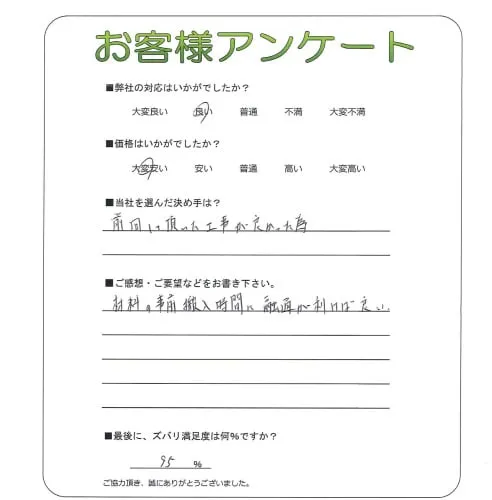 お客様アンケート
■弊社の対応はいかがでしたか？
大変良い 良い 普通 不満 大変不満
■価格はいかがでしたか？
大変安い 安い 普通 高い 大変高い
■当社を選んだ決め手は？
前回して頂いた工事が良かった為
■ご感想・ご要望などをお書き下さい。
材料の事前搬入時間に融通が利けば良い。
■最後に、ズバリ満足度は何%ですか？
95 %
ご協力頂き、誠にありがとうございました。